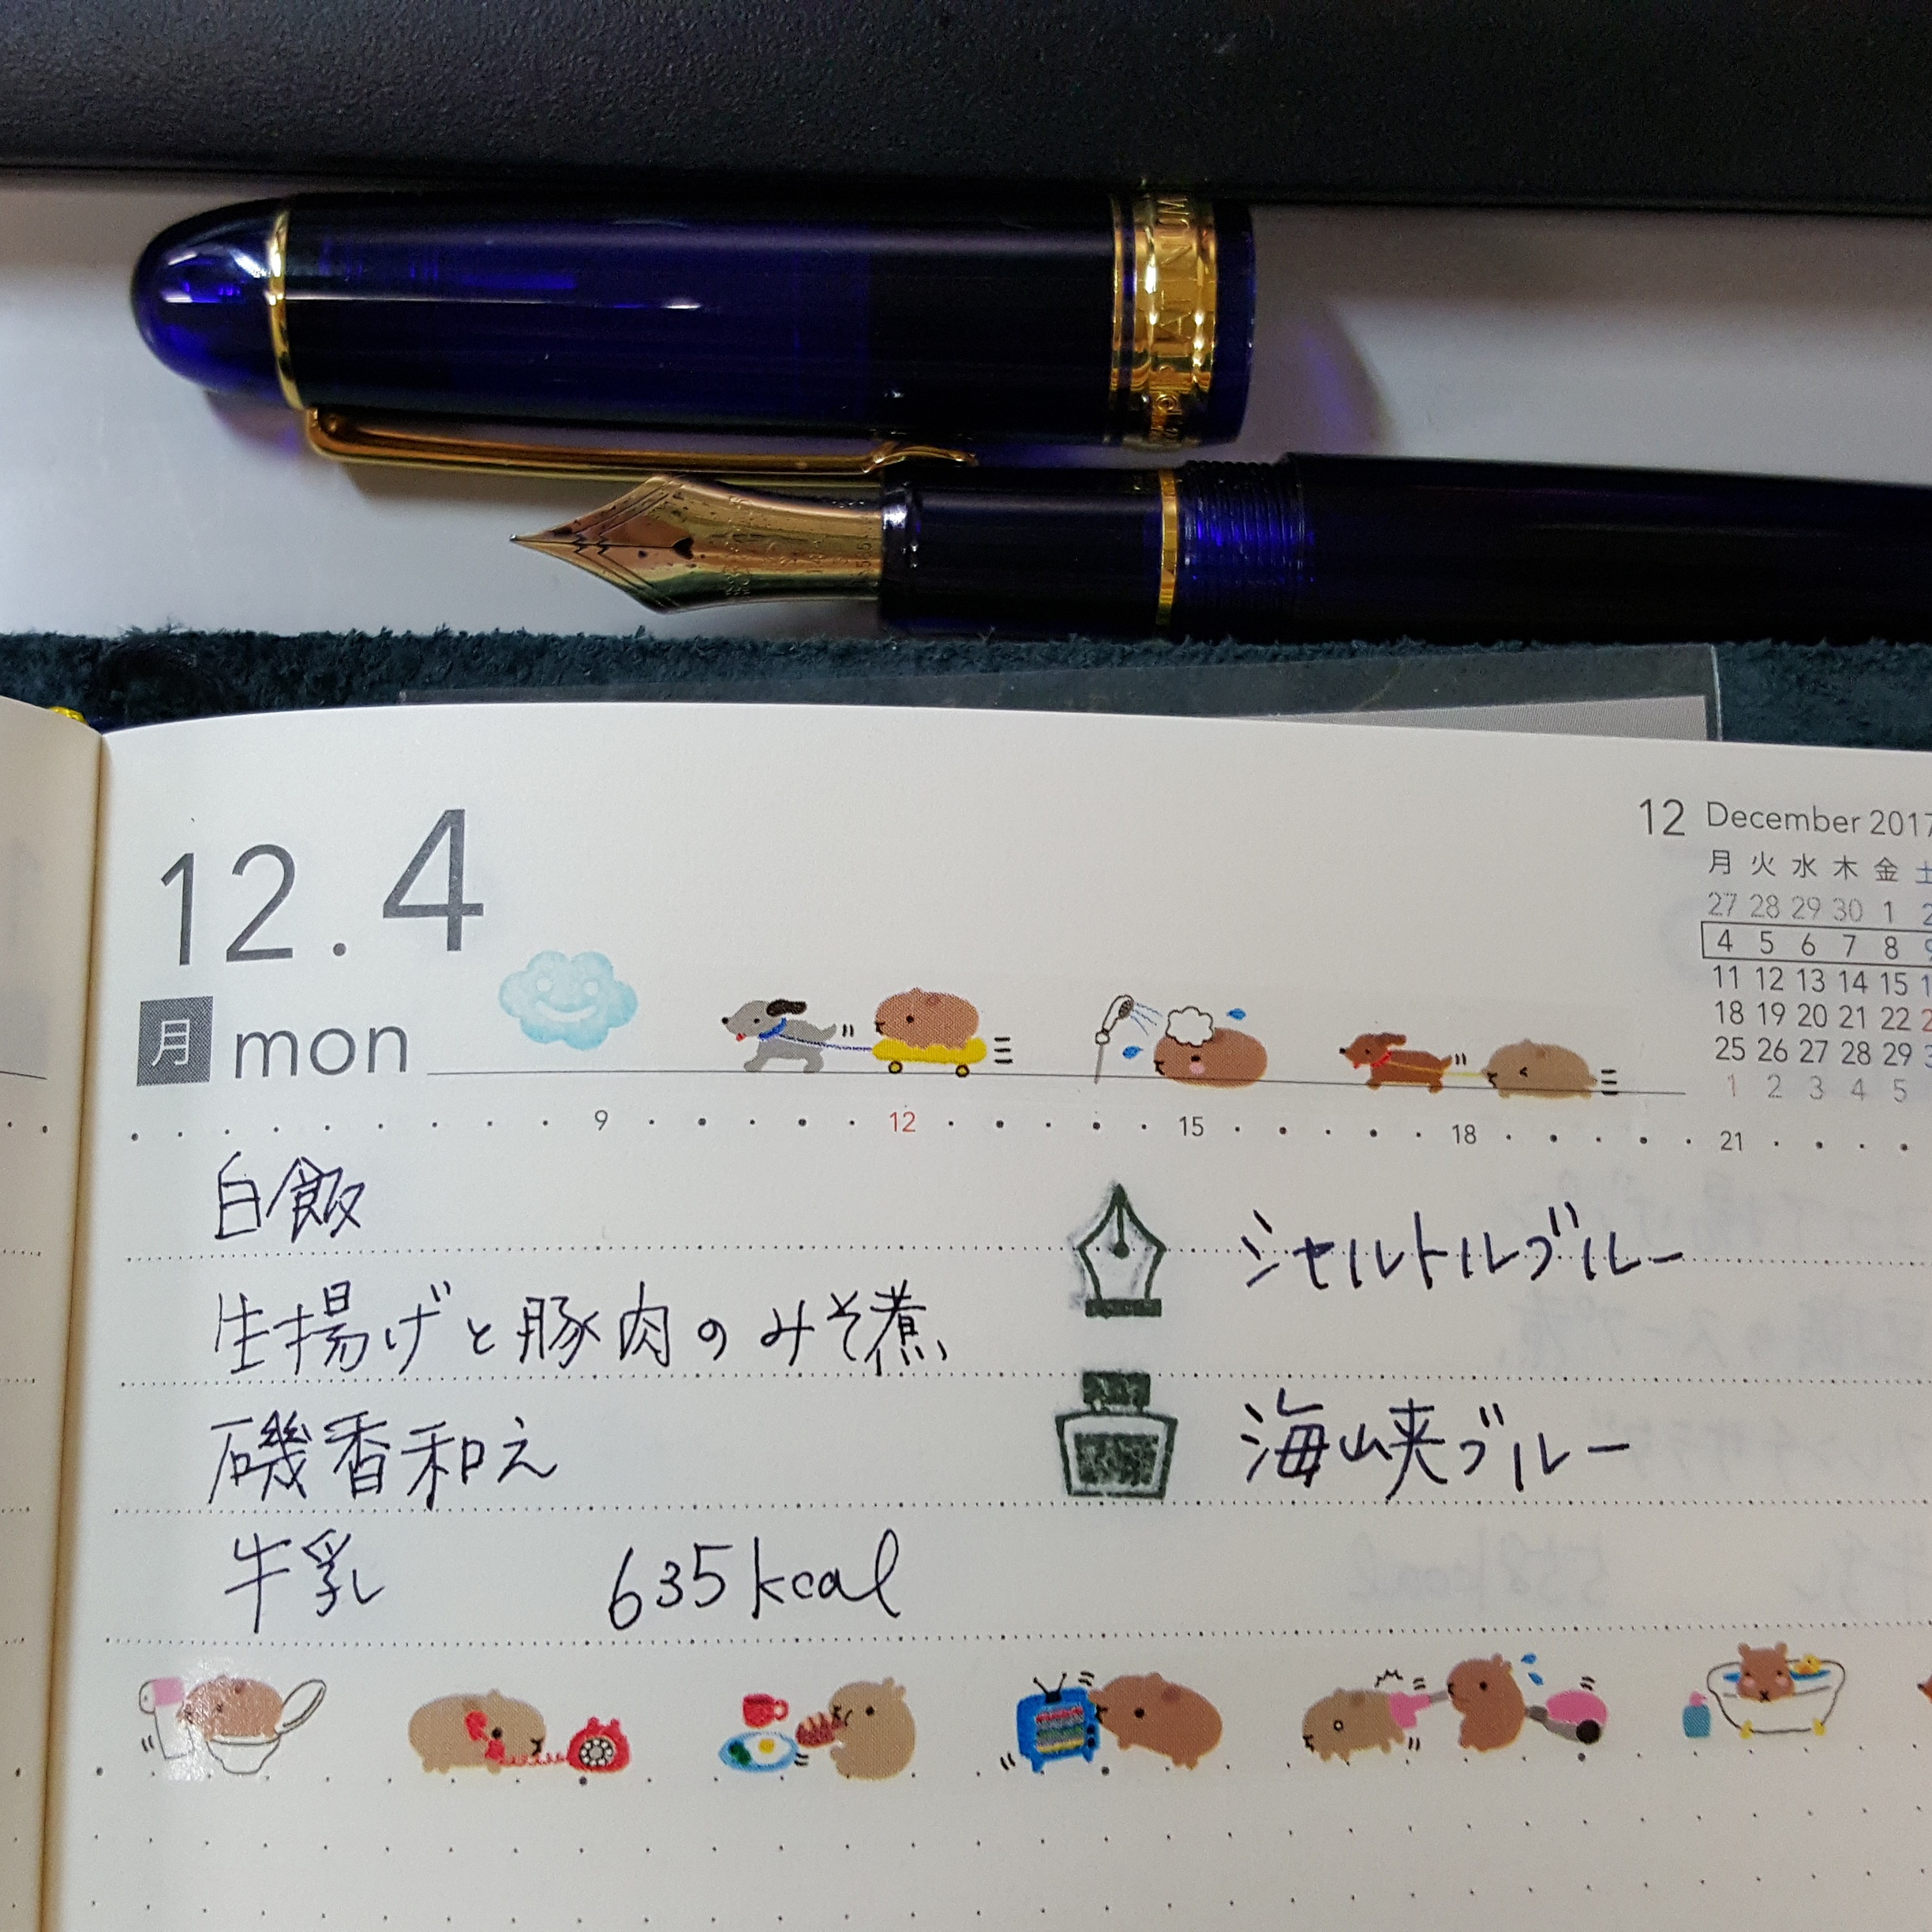 12.4
月 mon
12 December 2017
月 火 水 木 金 土
27 28 29 30 1 2
4 5 6 7 8 9
11 12 13 14 15
18 19 20 21 22
25 26 27 28 29
1 2 3 4 5
9 12 15 18 21
白飯
生揚げと豚肉のみそ煮
磯香和え
牛乳 635kcal
シャルトルブルー
海峡ブルー